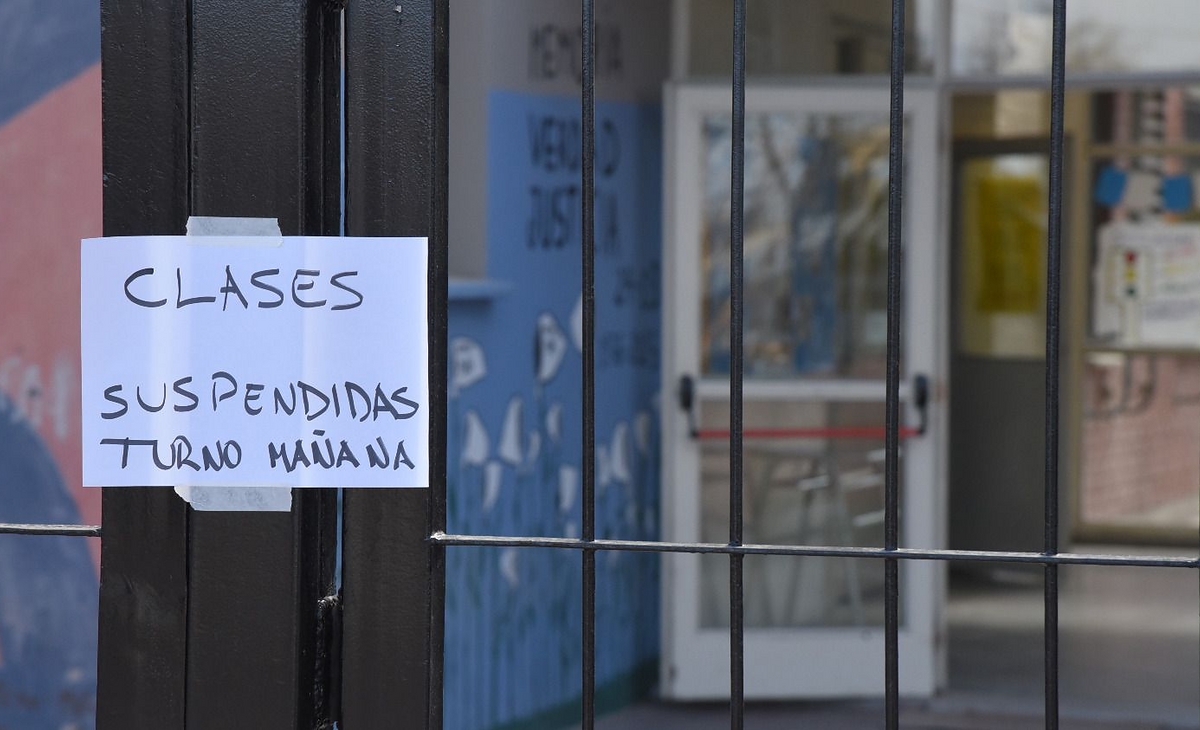 CLASES
SUSPENDIDAS
TURNO MAÑANA
MEMORIA
VERDAD
JUSTICIA